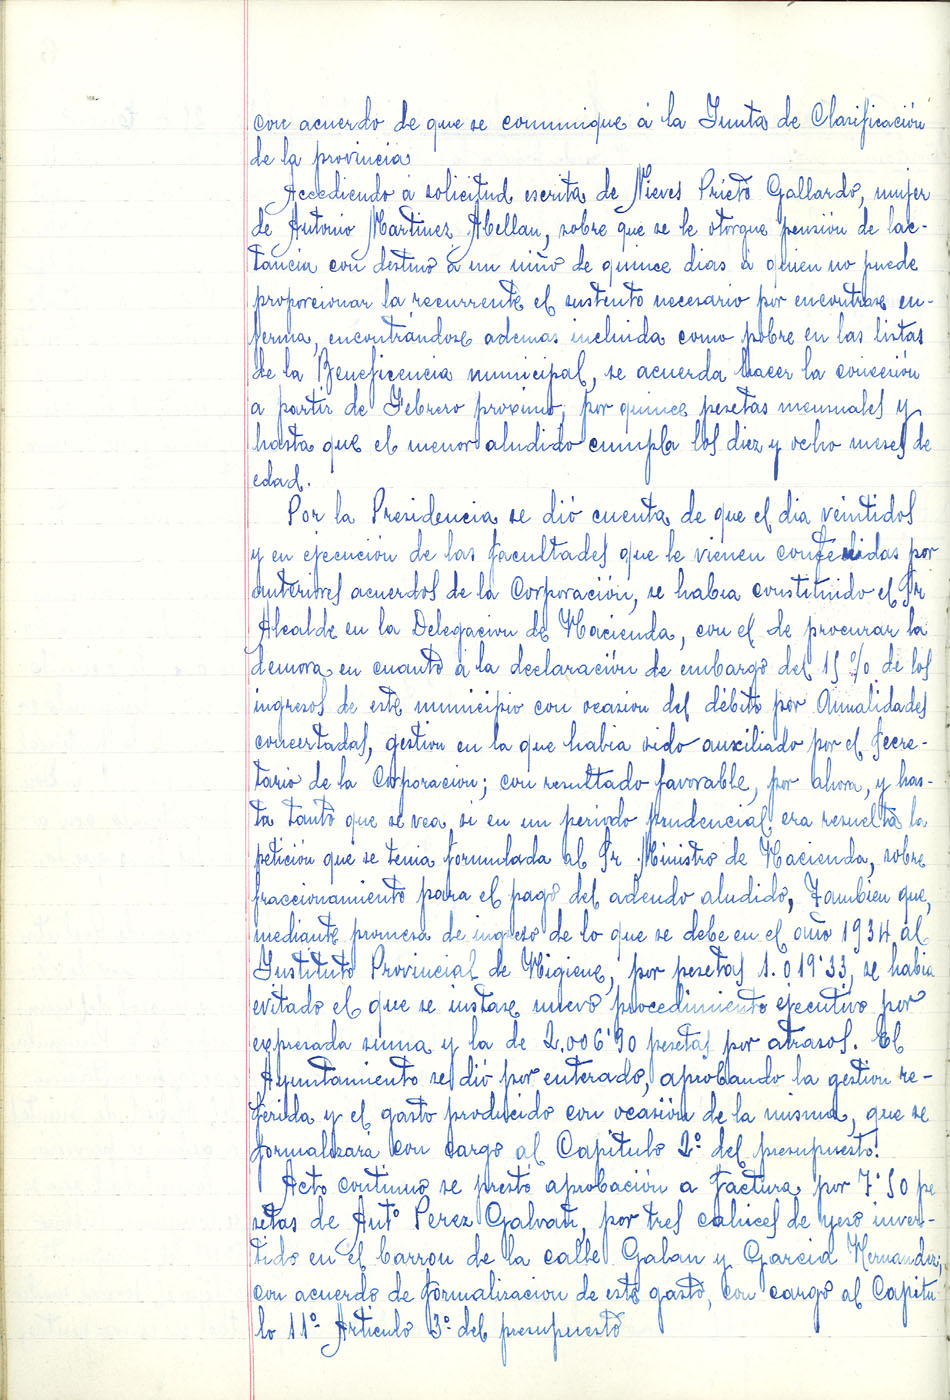 con acuerdo de que se comunique á la Junta de Clasificación
de la provincia
Accediendo a solicitud escrita de Nieves Prieto Gallardo, mujer
de Antonio Martinez Abellan, sobre que se le otorgue pensión de lac-
tancia con destino a un niño de quince dias a quien no puede
proporcionar la recurrente el sustento necesario por encontrase en-
ferma, encontrándose ademas incluida como pobre en las listas
de la Beneficencia municipal, se acuerda hacer la concesión
a partir de Febrero proximo, por quince pesetas mensuales y
hasta que el menor aludido cumpla los diez y ocho meses de
edad.
Por la Presidencia se dió cuenta de que el dia veintidos
y en ejecución de las facultades que le vienen conferidas por
anteriores acuerdos de la Corporación, se habia constituido el Sr
Alcalde en la Delegacion de Hacienda, con el de procurar la
demora en cuanto a la declaración de embargo del 15 % de los
ingresos de este municipio con ocasion del débito por Anualidades
concertadas, gestion en la que habia sido auxiliado por el Secre-
tario de la Corporacion; con resultado favorable, por ahora, y has-
ta tanto que se vea si en un periodo prudencial era resuelta la
petición que se tenia formulada al Sr Ministro de Hacienda, sobre
fraccionamiento para el pago del adeudo aludido, Tambien que,
mediante promesa de ingreso de lo que se debe en el año 1934 al
Instituto Provincial de Higiene, por pesetas 1.019'33, se habia
evitado el que se instase nuevo procedimiento ejecutivo por
expresada suma y la de 2.006'90 pesetas por atrasos. El
Ayuntamiento se dió por enterado, aprobando la gestion re-
ferida y el gasto producido con ocasión de la misma, que se
formalizará con cargo al Capitulo 2º del presupuesto.
Acto continuo se prestó aprobación a factura por 7'50 pe
setas de Antº Perez Galvan, por tres cahices de yeso inver-
tido en el barron de la calle Galan y Garcia Hernandez;
con acuerdo de formalizacion de este gasto, con cargo al Capitu
lo 11º Articulo 3º del presupuesto